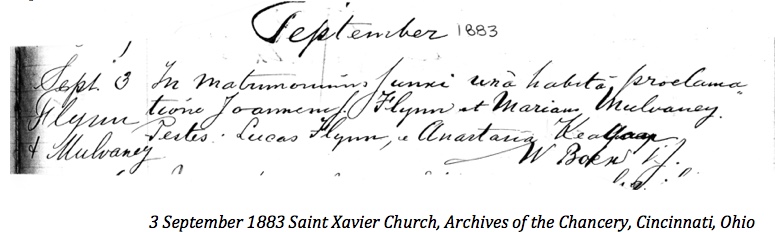 September 1883
Sept. 3 In matrimonium junxi unâ habitâ proclama
Flynn tione Joannem J. Flynn et Mariam Mulvaney.
Testes. Lucas Flynn, e Anastasia
& Mulvaney W Boex S.J.
3 September 1883 Saint Xavier Church, Archives of the Chancery, Cincinnati, Ohio